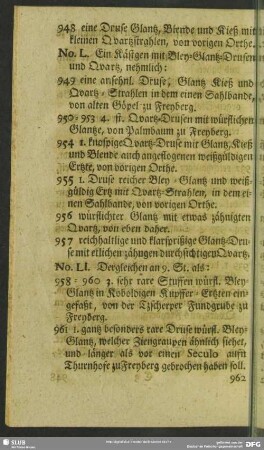 948 eine Druse Glantz, Blende und Kieß mit
kleinen Qvartzstrahlen, von vorigen Orthe.
No. L. Ein Käsigen mit Bley-Glantz-Drusen
und Qvartz, nehmlich:
949 eine ansehnl. Druse, Glantz Kieß und
Qvartz-Strahlen in dem einen Sahlbande,
von alten Göpel zu Freyberg.
950-953 4. st. Qvartz-Drusen mit würflichen
Glantze, von Palmbaum zu Freyberg.
954 1. knospige Qvartz-Druse mit Glantz, Kieß
und Blende auch angeflogenen weißgüldigen
Ertzte, von vorigen Orthe.
955 1. Druse reicher Bley-Glantz und weiß-
güldig Ertz mit Qvartz-Strahlen, in dem ei-
nen Sahlbande, von vorigen Orthe.
956 würflichter Glantz mit etwas zähnigten
Qvartz, von eben daher.
957 reichhaltige und klarspeißige Glantz-Dru-
se mit etlichen zähngen durchsichtigen Qvartz.
No. LI. Dergleichen an 9. St. als:
958-960 3. sehr rare Stuffen würfl. Bley-
Glantz in Koboldigen Kupffer-Ertzten ein-
gefaßt, von der Tzscherper Fundgrube zu
Freyberg.
961 1. gantz besonders rare Druse würfl. Bley-
Glantz, welcher Ziengraupen ähnlich siehet,
und länger als vor einen Seculo aufn
Thurnhofe zu Freyberg gebrochen haben soll.
962
SLUB